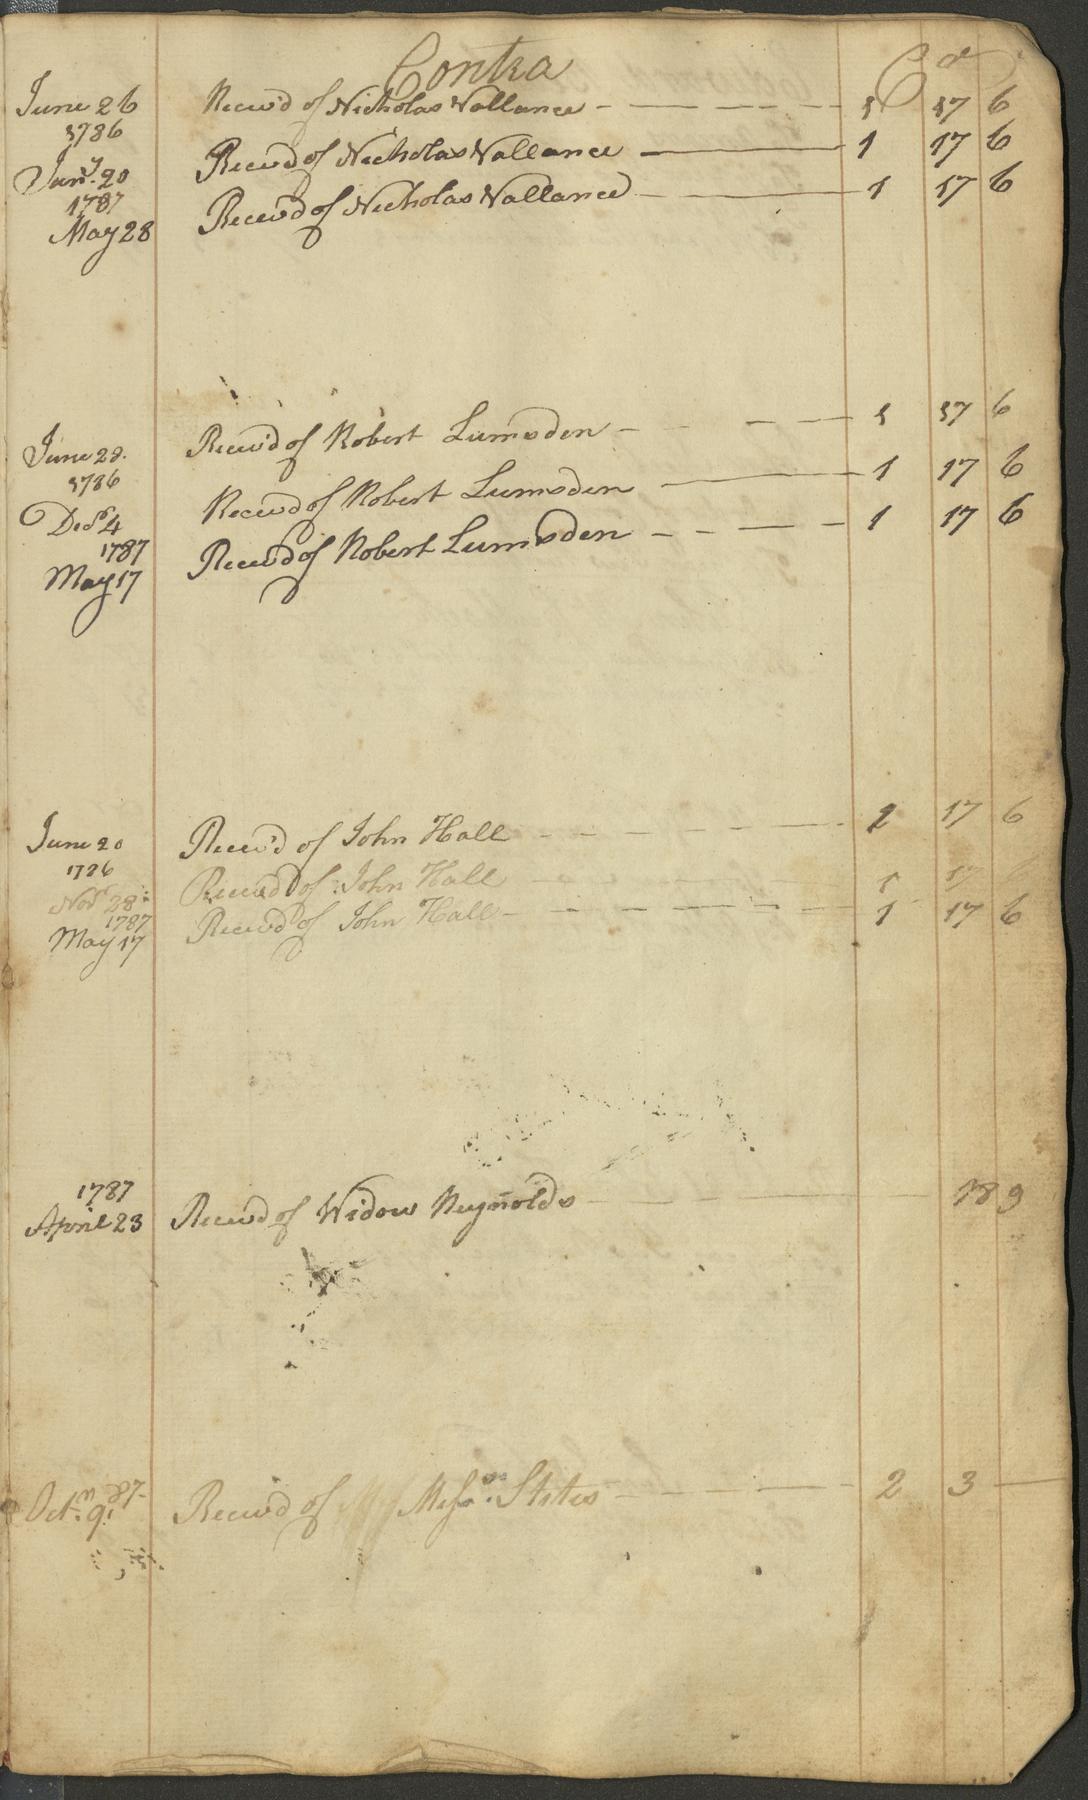 Contra Cr
June 26 Recev'd of Nicholas Vallance 1 17 6
1786
Jany. 20 Recev'd of Nicholas Vallance 1 17 6
1787
May 28 Recev'd of Nicholas Vallance 1 17 6
June 28. Recev'd of Robert Lumsden 1 17 6
1786
Decr 4 Recev'd of Robert Lumsden 1 17 6
1787
May 17 Recev'd of Robert Lumsden 1 17 6
June 20 Recev'd of John Hall 1 17 6
1786
Novr 28 Recev'd of John Hall 1 17 6
1787
May 17 Recev'd of John Hall 1 17 6
1787
April 23 Recev'd of Widow Reynolds 18 9
Oct. 9 87 Recev'd of Messrs. Stites 2 3